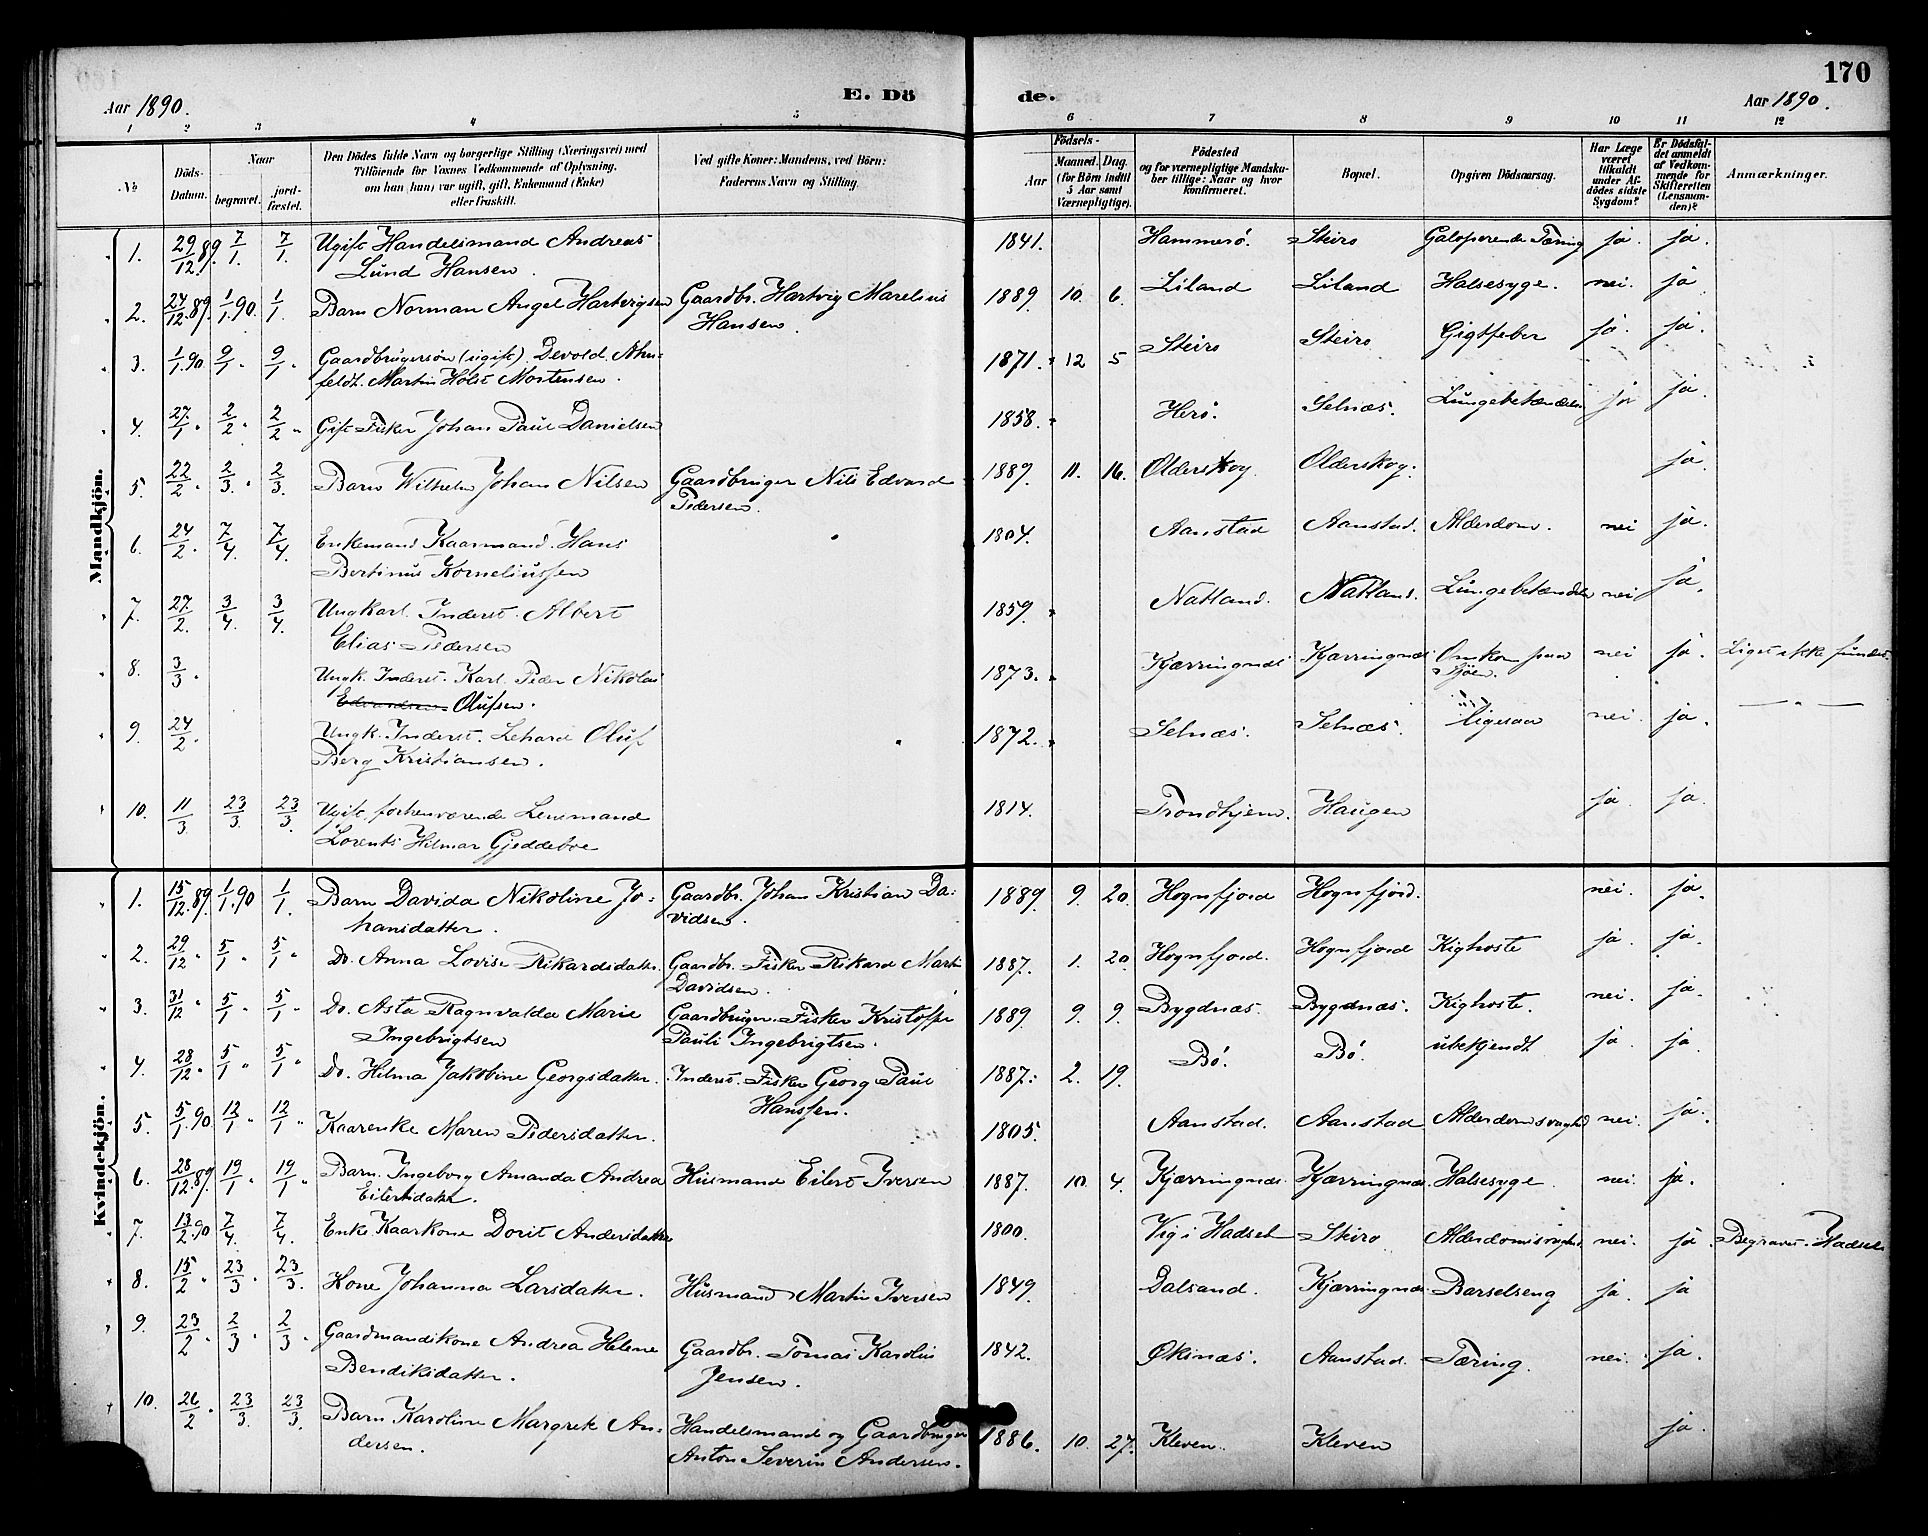 170
Aar 1890.
E. Dö
de.
Aar 1890.
1 2 3 4 5 6 7 8 9 10 11 12
No
Döds-Datum.
Naar
begravet.
jord-fæstet.
Den Dödes fulde Navn og borgerlige Stilling (Næringsvei) med
Tilföiende for Voxnes Vedkommende af Oplysning,
om han (hun) var ugift, gift, Enkemand (Enke)
eller fraskilt.
Ved gifte Koner: Mandens, ved Börn:
Faderens Navn og Stilling.
Födsels-
Aar
Maaned. Dag.
(for Börn indtil
5 Aar samt
Værnepligtige).
Födested
og for værnepligtige Mandsku-
ber tillige: Naar og hvor
konfirmeret.
Bopæl.
Opgiven Dödsaarsag.
Har Læge
været
tilkaldt
under Af-
dödes sidste
Sygdom?
Er Dödsfal-
det anmeldt
af Vedkom-
mende for
Skifteretten
(Lensman-
den)?
Anmærkninger.
Mandkjön.
1. 29/12 89. 7/1. 7/1. Ugift Handelsmand Andreas 1841. Hammerö. Steiro Galoperende Tæring ja. ja.
Lund Hansen.
2. 24/12 89. 1/1 90. 1/1. Barn Norman Angel Hartvigsen Gaardbr. Hartvig Marelius 1889 10. 6. Liland Liland Halsesyge. nei. ja
Hansen.
3. 1/1 90 9/1 " 9/1 " Gaardbrugersøn (ugift). Devold 1871. 12 5 Steiro Steiro Gigtfeber ja. ja.
feldt. Martin Holst Mortensen.
4. 27/1 " 2/2 " 2/2 " Gift Fisker Johan Paul Danielsen 1858. Herö. Selnæs. Lungebetændelse ja ja.
5. 22/2 " 2/3 " 2/3. Barn Wilhelm Johan Nilsen Gaardbruger Nils Edvard 1889. 11. 16. Olderskog Olderskog. ja.
Pedersen.
6. 24/2. 7/4. 7/4. Enkemand Kaarmand Hans 1804. Aanstad Aanstad. Alderdom. nei ja.
Bertinus Korneliussen
7. 27/2. 3/4. 3/4. Ungkarl Inderst Albert 1859. Natland. Natland. Lungebetændelse nei ja.
Elias Pedersen
8. 3/3. Ungk. Inderst. Karl Peder Nikolai 1873. Kjærringnæs Kjærringnæs Omkom paa nei ja. Liget ikke fundet.
Edvardsen Olufsen. Sjöen.
9. 24/2. Ungk. Inderst. Lehard Oluf 1872. Selnæs. Selnæs. ligesaa nei. ja. — " —
Berg Kristiansen.
10. 11/3 23/3. 23/3. Ugift, forhenværende Lensmand 1814. Trondhjem. Haugen ja. ja.
Lorents Hilmar Gjeddebo
Kvindekjön.
1. 15/12 89. 1/1 90 1/1. Barn Davida Nikoline Jo- Gaardbr. Johan Kristian Da- 1889 9. 20. Hognfjord Hognfjord. nei. ja.
hansdatter. vidsen.
2. 29/12 " 5/1 " 5/1 " Do. Anna Lovise Rikardsdatter. Gaardbr. Fisker Rikard Martin 1887. 1. 20. Hognfjord. Hognfjord Kighoste ja. ja.
Davidsen.
3. 31/12 " 5/1 " 5/1 " Do. Asta Ragnvalda Marie Gaardbruger. Fisker Kristoffer 1889. 9. 9. Bygdnæs. Bygdnæs. Kighoste. nei. ja.
Ingebrigtsen Pauli Ingebrigtsen.
4. 28/12 " 5/1 " 5/1 " Do. Hilma Jakobine Georgsdatter. Inderst. Fisker Georg Paul 1887. 2. 19. Bö. Bö. ubekjendt ja. ja.
Hanssen.
5. 5/1 90 12/1 " 12/1 " Kaarenke Maren Pedersdatter. 1805. Aanstad. Aanstad Alderdomsvaghed nei. ja.
6. 28/12 89 19/1 " 19/1 " Barn Ingeborg Amanda Andrea Husmand Eilert Iversen 1887. 10. 4. Kjærringnæs. Kjærringnæs. Halsesyge. nei. ja.
Eilertsdatter.
7. 13/2 90 7/4. 7/4. Enke Kaarkone Dorit Andersdatter 1800. Vig i Hadsel Steiro Alderdomsvaghed. nei. ja. Begravet i Hadsel
8. 15/2 " 23/3. 23/3. Kone Johanna Larsdatter. Husmand Martin Iversen 1849. Dalsand. Kjærringnæs Barselseng ja. ja
9. 23/2. 2/3. 2/3. Gaardmandskone Andrea Helene Gaardbr. Tomas Karolius 1842. Øksnæs. Aanstad. Tæring. nei. ja.
Bendiksdatter. Jensen.
10. 26/2. 23/3. 23/3. Barn Karoline Margrete An- Handelsmand og Gaardbruger 1886. 10. 27. Kleven. Kleven ja.
dersen. Anton Severin Andersen.